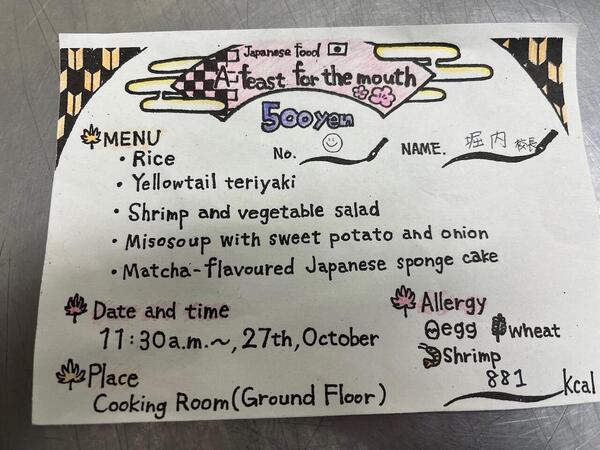 Japanese food
A feast for the mouth
500yen
MENU
No.
NAME. 堀内 校長
・Rice
・Yellowtail teriyaki
・Shrimp and vegetable salad
・Misosoup with sweet potato and onion
・Matcha-flavoured Japanese sponge cake
Date and time
11:30a.m.~, 27th, October
Place
Cooking Room(Ground Floor)
Allergy
egg wheat
Shrimp
881 kcal